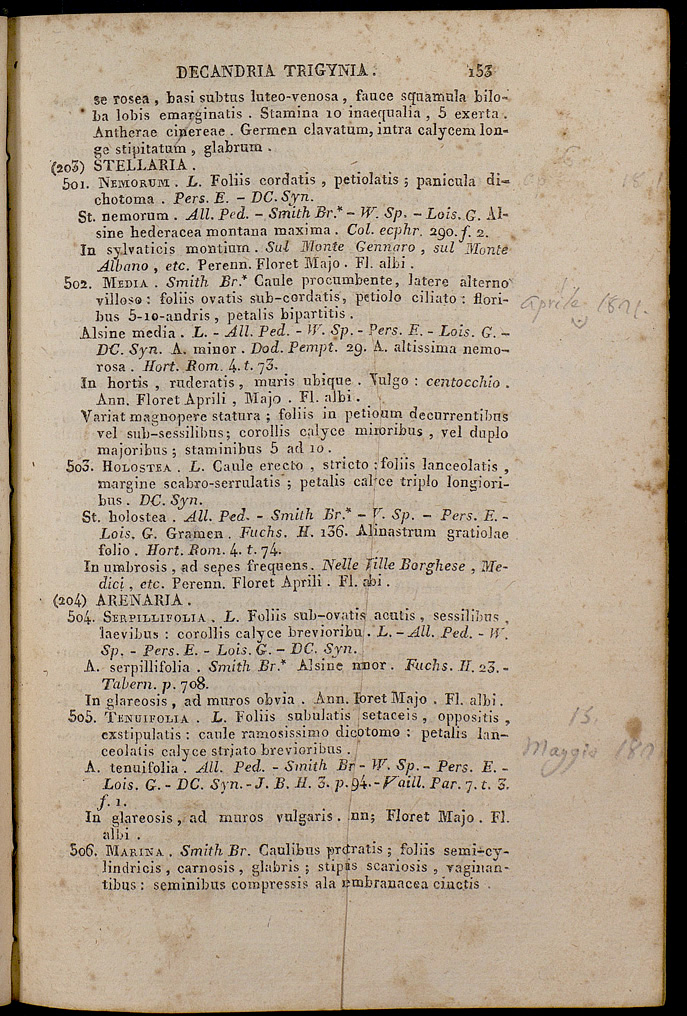 DECANDRIA TRIGYNIA. 153
se rosea , basi subtus luteo-venosa , fauce squamula bilo-
ba lobis emarginatis . Stamina 10 inaequalia , 5 exerta .
Antherae cinereae . Germen clavatum, intra calycem lon-
ge stipitatum , glabrum .
(203) STELLARIA .
501. NEMORUM . L. Foliis cordatis , petiolatis ; panicula di-
chotoma . Pers. E. - DC. Syn.
St. nemorum . All. Ped. - Smith Br.* - W. Sp. - Lois. G. Al-
sine hederacea montana maxima . Col. ecphr. 290. f. 2.
In sylvaticis montium . Sul Monte Gennaro , sul Monte
Albano , etc. Perenn. Floret Majo . Fl. albi .
502. MEDIA . Smith Br.* Caule procumbente, latere alterno
villoso : foliis ovatis sub-cordatis, petiolo ciliato : flori-
bus 5-10-andris , petalis bipartitis .
Alsine media . L. - All. Ped. - W. Sp. - Pers. E. - Lois. G. -
DC. Syn. A. minor . Dod. Pempt. 29. A. altissima nemo-
rosa . Hort. Rom. 4. t. 73.
In hortis , ruderatis , muris ubique . Vulgo : centocchio .
Ann. Floret Aprili , Majo . Fl. albi .
Variat magnopere statura ; foliis in petioum decurrentibus
vel sub-sessilibus; corollis calyce mioribus , vel duplo
majoribus ; staminibus 5 ad 10 .
503. HOLOSTEA . L. Caule erecto , stricto ; foliis lanceolatis ,
margine scabro-serrulatis ; petalis calyce triplo longiori-
bus . DC. Syn.
St. holostea . All. Ped. - Smith Br.* - V. Sp. - Pers. E. -
Lois. G. Gramen . Fuchs. H. 136. Alinastrum gratiolae
folio . Hort. Rom. 4. t. 74.
In umbrosis , ad sepes frequens . Nelle Ville Borghese , Me-
dici , etc. Perenn. Floret Aprili . Fl. abi .
(204) ARENARIA .
504. SERPILLIFOLIA . L. Foliis sub-ovatis acutis , sessilibus ,
laevibus : corollis calyce brevioribu . L. - All. Ped. - W.
Sp. - Pers. E. - Lois. G. - DC. Syn.
A. serpillifolia . Smith Br.* Alsine mnor . Fuchs. H. 23. -
Tabern. p. 708.
In glareosis , ad muros obvia . Ann. Floret Majo . Fl. albi .
505. TENUIFOLIA . L. Foliis subulatis setaceis , oppositis ,
exstipulatis : caule ramosissimo dicotomo : petalis lan-
ceolatis calyce striato brevioribus .
A. tenuifolia . All. Ped. - Smith Br - W. Sp. - Pers. E. -
Lois. G. - DC. Syn. - J. B. H. 3. p. 94. - Vaill. Par. 7. t. 3.
f. 1.
In glareosis , ad muros vulgaris . nn; Floret Majo . Fl.
albi .
506. MARINA . Smith Br. Caulibus prtratis ; foliis semi-cy-
lindricis , carnosis , glabris ; stipis scariosis , vaginan-
tibus : seminibus compressis ala mbranacea cinctis .
Aprile
15.
Maggio